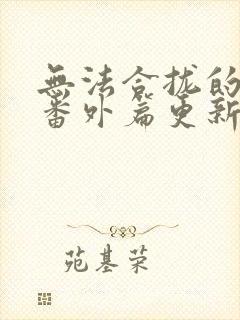 無法合拢的
番外篇更新
苑基荣